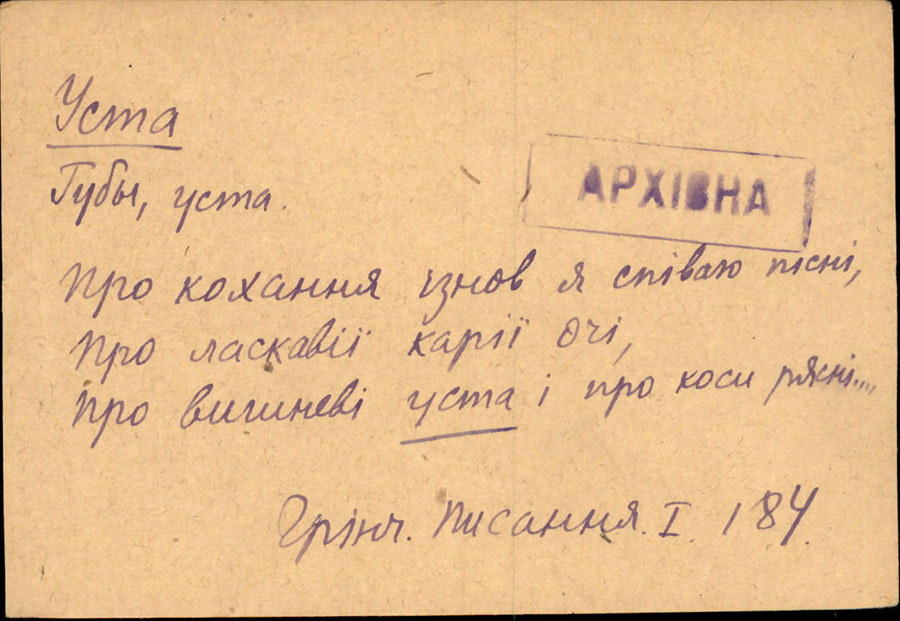 Уста
АРХІВНА
Губы, уста.
Про кохання ізнов я співаю пісні,
Про ласкавії карії очі,
Про вишневі уста і про коси рясні....
Грінч. Писання. I. 184.